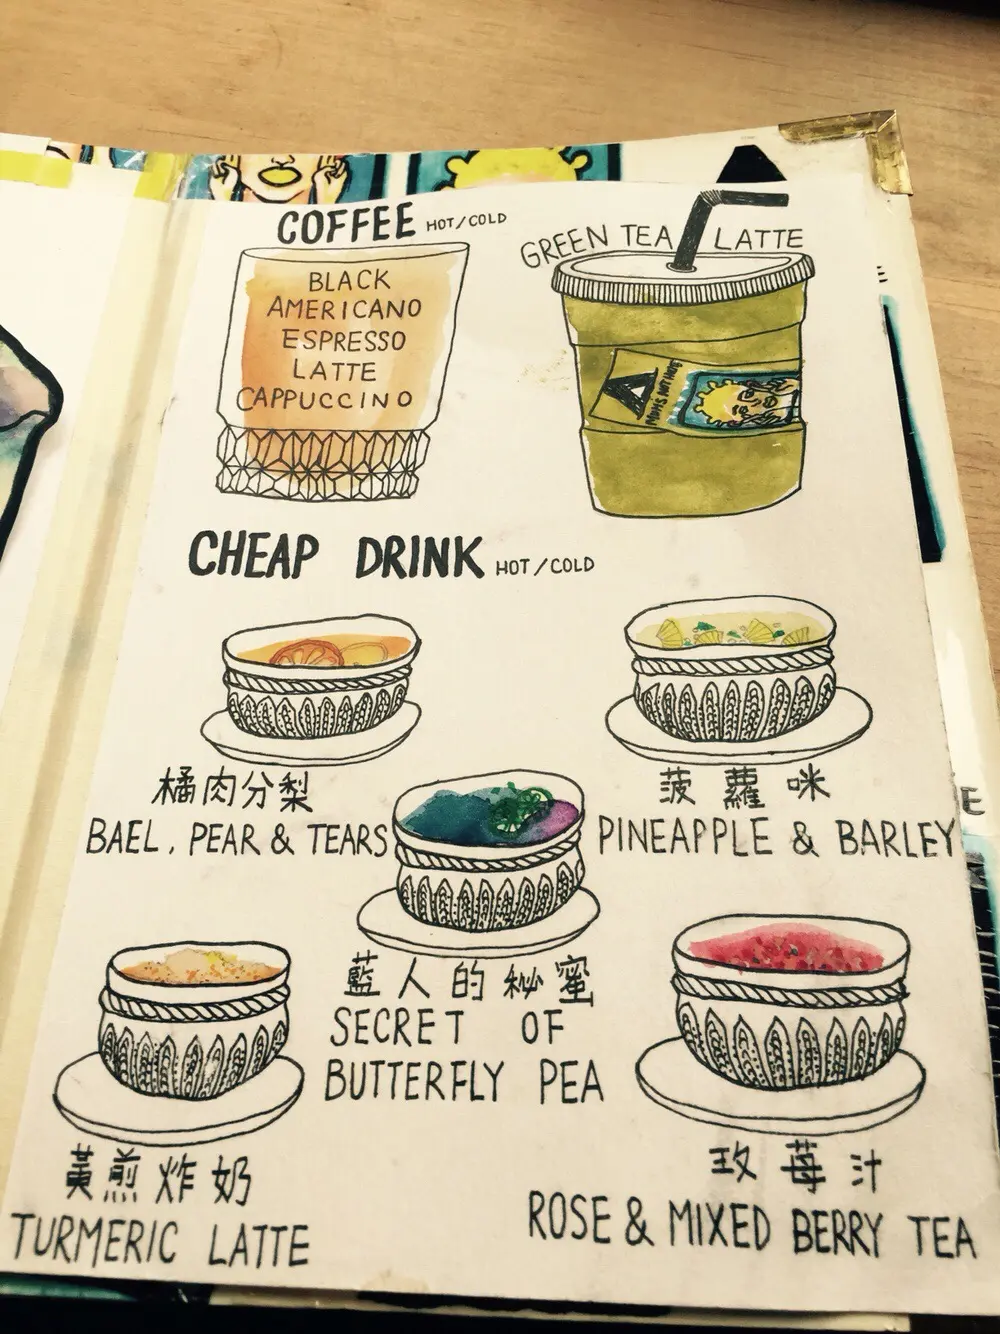 COFFEE HOT/COLD
BLACK
AMERICANO
ESPRESSO
LATTE
CAPPUCCINO
GREEN TEA LATTE
MOM'S NOT HOME
CHEAP DRINK HOT/COLD
橘肉分梨
BAEL, PEAR & TEARS
菠蘿咪
PINEAPPLE & BARLEY
藍人的秘蜜
SECRET OF
BUTTERFLY PEA
黃煎炸奶
TURMERIC LATTE
玫莓汁
ROSE & MIXED BERRY TEA